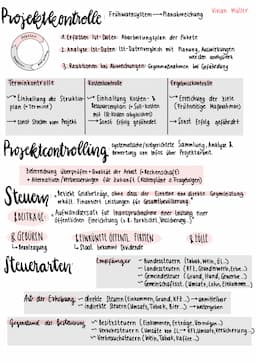 Projektkontrolle Frühwarnsystem → Planabweichung
Vivian Müller
1. Erfassen Ist-Daten: Abarbeitungsplan der Pakete
2. Analyse Ist-Daten: Ist-Datenvergleich mit Planung, Auswirkungen
werden
3. Reaktionen bei Abweichungen: Gegenmaßnahmen bei Gefährdung
Terminkontrolle
→ Einhaltung des Struktur-
plan (= Termine)
→ sonst Starten vom Projekt
Kostenkontrolle
→ Einhaltung Kosten- &
Ressourcenplan (= Soll-Kosten
mit Ist-Kosten abgleichen)
→ Sonst Erfolg gefährdet
Ergebniskontrolle
→ Erreichung der Ziele
(frühzeitige Maßnahmen)
→ Sonst Erfolg gefährdet
Projektcontrolling systematische/zielgerichtete Sammlung, Analyse &
Bewertung von Infos über Projektarbeit
Datenerhebung überprüfen → Qualität der Arbeit (= Rechenschaft)
+ Alternativen/Verbesserungen für Zukunft
Steuern "Bezieht Geldbeträge, ohne dass der Einzelne eine direkte Gegenleistung
erhält. Finanziert Leistungen für Gesamtbevölkerung."
& BEITRÄGE "Aufwandsersatz für Inanspruchnahme einer Leistung einer
öffentlichen Einrichtung
& GEBÜREN
→ Beantragung
& EINKÜNFTE ÖFFENTL. FIRMEN
→ Staat bekommt Dividende
& ZÖLLE
Steuerarten
Empfänger
- Bundessteuern (Tabak, Wein, Öl...)
- Landessteuern (KFZ, Grunderwerb, Erbe...)
- Gemeindesteuer (Grund, Hund, Gewerbe...)
- Gemeinschaftsst. (Umsatz, Lohn, Einkommen...)
Art der Erhebung
- direkte Steuern (Einkommen, Grund, KFZ...) → unmittelbar
- indirekte Steuern (Umsatz, Tabak, Bier...) →
Gegenstand der Besteuerung
- Besitzsteuern (Einkommen, Erträge, Vermögen)
- Verkehrssteuern
- Verbrauchssteuern (Tabak, Kaffee...)